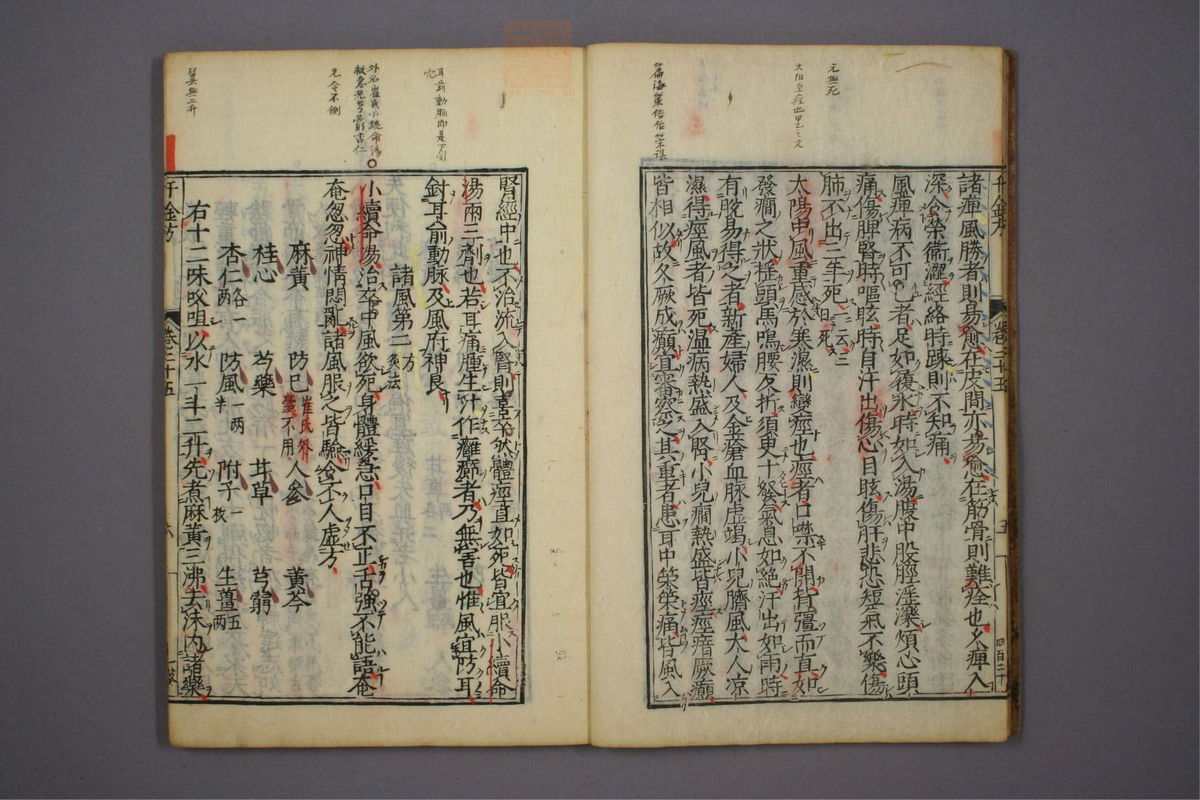 諸痺風勝者則易愈在皮間亦易愈在筋骨則難痊也久痺入
深令榮衛澁經絡時踈則不知痛
風痺病不可已者足如履氷時如入湯腹中股脛淫濼煩心頭
痛傷脾腎時嘔眩時自汗出傷心目眩傷肝悲恐短氣不樂傷
肺不出三年死一云三日死
太陽中風重感於寒濕則變痙也痙者口噤不開背彊而直如
發癇之狀揺頭馬鳴腰反折須臾十發氣息如絶汗出如雨時
有脫易得之者新產婦人及金瘡血脉虛竭小兒臍風大人凉
濕得痙風者皆死温病熱盛入腎小兒癇熱盛皆痙痙瘖厥癲
皆相似故久厥成癲宜審察之其重者患耳中䇦䇦痛皆風入
千金方
卷二十五
五
腎經中也不治流入腎則喜卒然體痙直如死皆宜服小續命
湯兩三劑也若耳痛腫生汁作癰癤者乃無害也惟風宜防耳
針耳前動脉及風府神良
諸風第二 方 灸法
小續命湯治卒中風欲死身體緩急口目不正舌強不能語奄
奄忽忽神情悶亂諸風服之皆驗令不人虛方
麻黃 防己崔氏外臺不用 人參 黃芩
桂心 芍藥 甘草 芎藭
杏仁各一兩 防風一兩半 附子一枚 生薑五兩
右十二味㕮咀以水一斗二升先煮麻黃三沸去沫内諸藥
千金方
卷二十五
耳前動脉即是下關穴